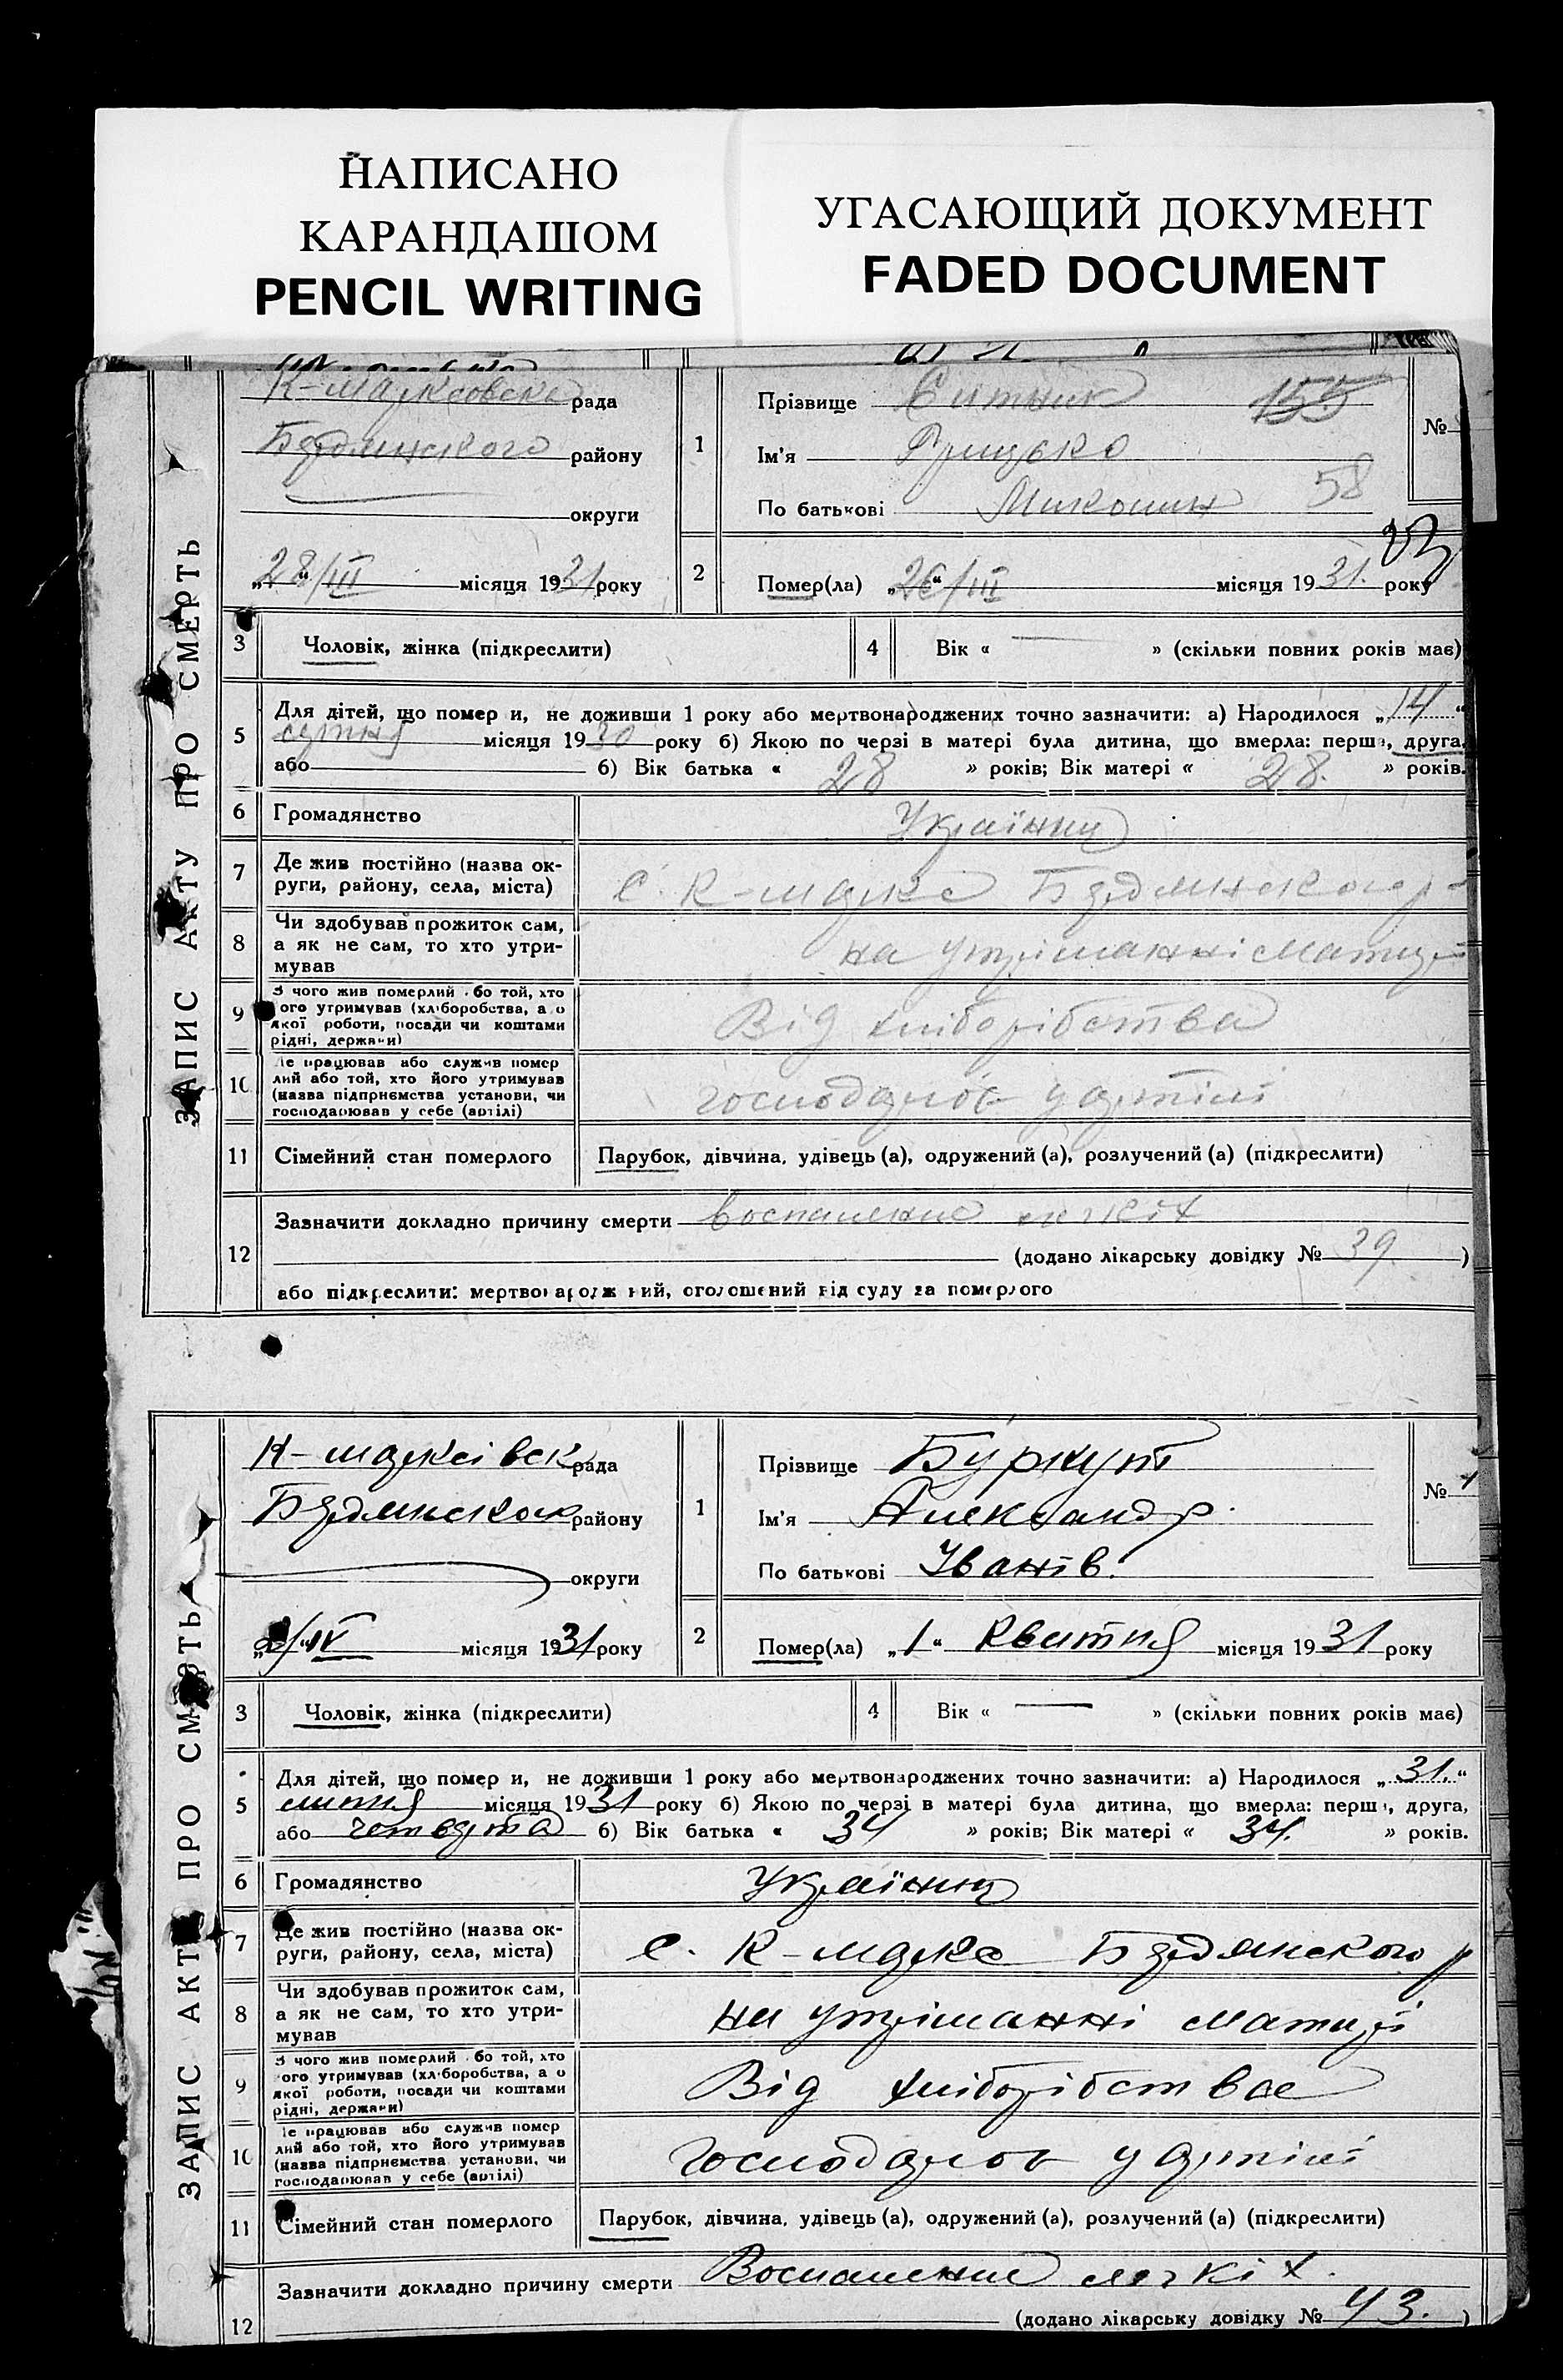 НАПИСАНО
КАРАНДАШОМ
PENCIL WRITING
УГАСАЮЩИЙ ДОКУМЕНТ
FADED DOCUMENT
ЗАПИС АКТУ ПРО СМЕРТЬ
К-Марксовска рада
району
округи
„28/III місяця 1931 року
1
Прізвище Ситник 155
Ім'я Грицько
По батькові 58
№
23
2
Помер(ла) „26“/III місяця 1931. року
3 Чоловік, жінка (підкреслити)
4 Вік « — » (скільки повних років має)
5
Для дітей, що помер и, не доживши 1 року або мертвонароджених точно зазначити: а) Народилося „14“
серпня місяця 1930 року б) Якою по черзі в матері була дитина, що вмерла: перша, друга,
або б) Вік батька « 28 » років; Вік матері « 28. » років.
6 Громадянство Українець
7
Де жив постійно (назва ок-
руги, району, села, міста)
с. К-Маркса
8
Чи здобував прожиток сам,
а як не сам, то хто утри-
мував
на утріманні матері
9
З чого жив померлий або той, хто
ого утримував (хліборобства, а о
якої роботи, посади чи коштами
рідні, держави)
Від хліборібства
10
Де працював або служив помер
лий або той, хто його утримував
(назва підприємства установи, чи
господарював у себе (артілі)
у артілі
11 Сімейний стан померлого
Парубок, дівчина, удівець (а), одружений (а), розлучений (а) (підкреслити)
12
Зазначити докладно причину смерти воспаление легкіх
(додано лікарську довідку № 39. )
або підкреслити: мертвонароджений, оголошений від суду за померлого
ЗАПИС АКТУ ПРО СМЕРТЬ
К-Марксівск рада
району
округи
/IV місяця 1931 року
1
Прізвище Буркут
Ім'я Александр.
По батькові Іванів.
№
2
Помер(ла) „1“ Квитня місяця 1931 року
3 Чоловік, жінка (підкреслити)
4 Вік « — » (скільки повних років має)
5
Для дітей, що помер и, не доживши 1 року або мертвонароджених точно зазначити: а) Народилося „31.“
липня місяця 1931 року б) Якою по черзі в матері була дитина, що вмерла: перша, друга,
або четверта б) Вік батька « 34 » років; Вік матері « 34. » років.
6 Громадянство Українець
7
Де жив постійно (назва ок-
руги, району, села, міста)
с. К-Маркса
8
Чи здобував прожиток сам,
а як не сам, то хто утри-
мував
на утріманні матері
9
З чого жив померлий або той, хто
ого утримував (хліборобства, а о
якої роботи, посади чи коштами
рідні, держави)
Від хліборібства
10
Де працював або служив помер
лий або той, хто його утримував
(назва підприємства установи, чи
господарював у себе (артілі)
у артілі
11 Сімейний стан померлого
Парубок, дівчина, удівець (а), одружений (а), розлучений (а) (підкреслити)
12
Зазначити докладно причину смерти Воспаление легкіх.
(додано лікарську довідку № 43. )